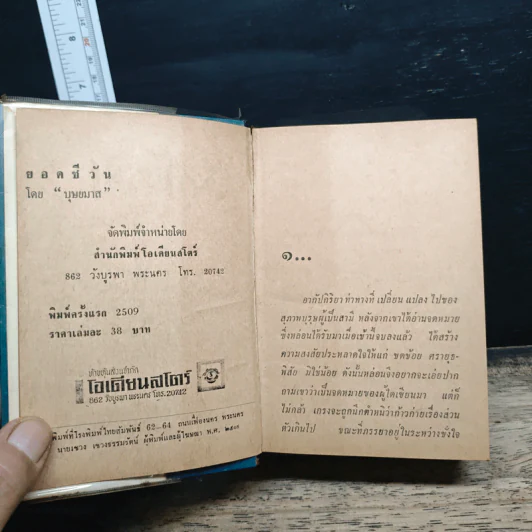 ยอดชีวัน
โดย “บุษยมาส”
จัดพิมพ์จำหน่ายโดย
สำนักพิมพ์โอเดียนสโตร์
862 วังบูรพา พระนคร โทร. 20742
พิมพ์ครั้งแรก 2509
ราคาเล่มละ 38 บาท
ห้างหุ้นส่วนจำกัด
โอเดียนสโตร์
862 วังบูรพา พระนคร โทร. 20742
พิมพ์ที่โรงพิมพ์ไทยสัมพันธ์ 62-64 ถนนเฟื่องนคร พระนคร
นายเชวง เชวงธรรมรัตน์ ผู้พิมพ์และผู้โฆษณา พ.ศ.
๑...
อากัปกิริยา ท่าทางที่ เปลี่ยน แปลง ไปของ
สุภาพบุรุษผู้เป็นสามี หลังจากเขาได้อ่านจดหมาย
ซึ่งหล่อนได้รับมาเมื่อเช้านี้จบลงแล้ว ได้สร้าง
ความสงสัยประหลาดใจให้แก่ ชดช้อย ศรายุธ-
พิสัย มิใช่น้อย ดังนั้นหล่อนจึงอยากจะเอ่ยปาก
ถามเขาว่าเป็นจดหมายของผู้ใดเขียนมา แต่ก็
ไม่กล้า เกรงจะถูกนึกตำหนิว่าก้าวก่ายเรื่องส่วน
ตัวเกินไป ขณะที่ภรรยาอยู่ในระหว่างชั่งใจ